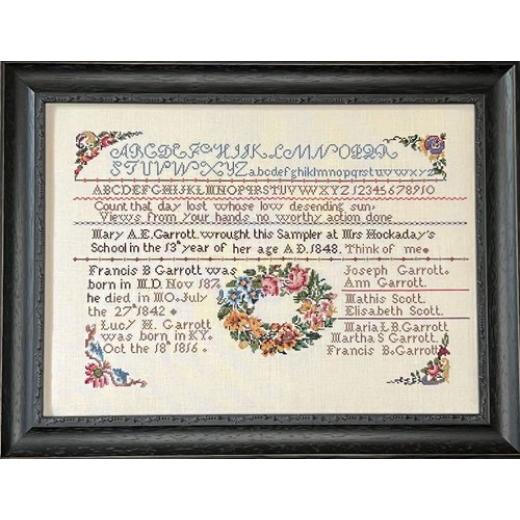 ABCDEFGHIJKLMNOPQR
STUVWXYZ abcdefghiklmnopqrstuvwxyz
ABCDEFGHIJKLMNOPQRSTUVWXYZ 12345678910
Count that day lost whose low desending sun,
Views from your hands no worthy action done.
Mary A.E. Garrott wrought this Sampler at Mrs Hockaday's
School in the 13th year of her age A.D. 1848. Think of me.
Francis B Garrott was
born in M.D. Nov
he died in MO. July
the 27th 1842
Lucy H. Garrott
was born in KY.
Oct the 18th 1816.
Joseph Garrott.
Ann Garrott.
Mathis Scott.
Elisabeth Scott.
Maria L.B. Garrott
Martha S Garrott.
Francis B. Garrott